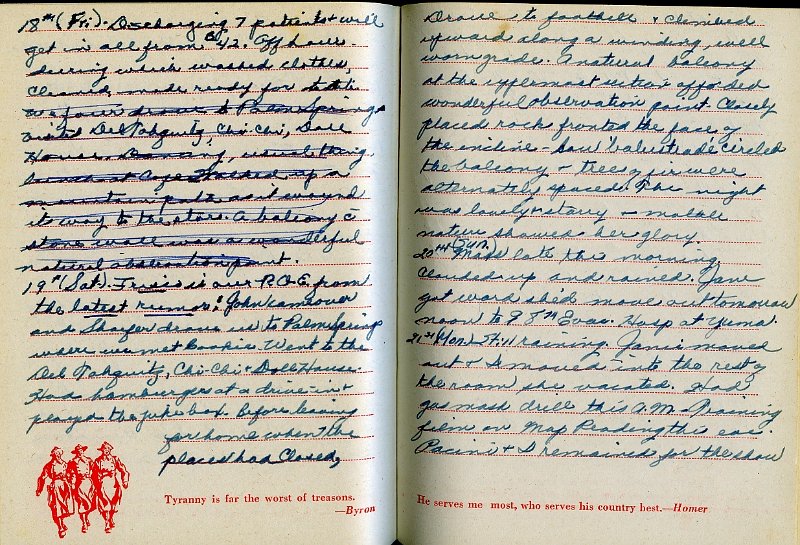 18th (Fri). Discharging 7 patients & will
get in all from 42. Off hours
during which washed clothes,
cleaned, made ready for
four drove to Palm Springs
visited Del Tahquitz, Chi Chi, Doll
House. Dancing, usual thing.
up a
mountain path as it wound
its way to the stars. A balcony c̄
stone wall was a wonderful
natural observation point.
19th (Sat). Travis is our P.O.E. from
the latest rumor! John came over
and Shafer drove us to Palm Springs
where we met Bookie. Went to the
Del Tahquitz, Chi-Chi & Doll House.
Had hamburgers at a drive-in &
played the juke box. Before leaving
for home when the
places had closed,
Tyranny is far the worst of treasons.
—Byron
Drove to foothills & climbed
upward along a winding, well
worn grade. A natural balcony
at the uppermost section afforded
wonderful observation point. Closely
placed rock fronted the face of
the incline - low balustrade circled
the balcony - trees of fir were
alternately spaced. The night
was lovely & starry - mother
nature showed her glory.
20th (Sun.) Mass late this morning
Clouded up and rained. Jane
got word she'd move out tomorrow
noon to 98th Evac. Hosp at Yuma.
21st (Mon) Still raining. Janie moved
out & I moved into the rest of
the room she vacated. Had
gas mask drill this A.M. Training
film on Map Reading this eve.
Pacini & I remained for the show
He serves me most, who serves his country best.—Homer